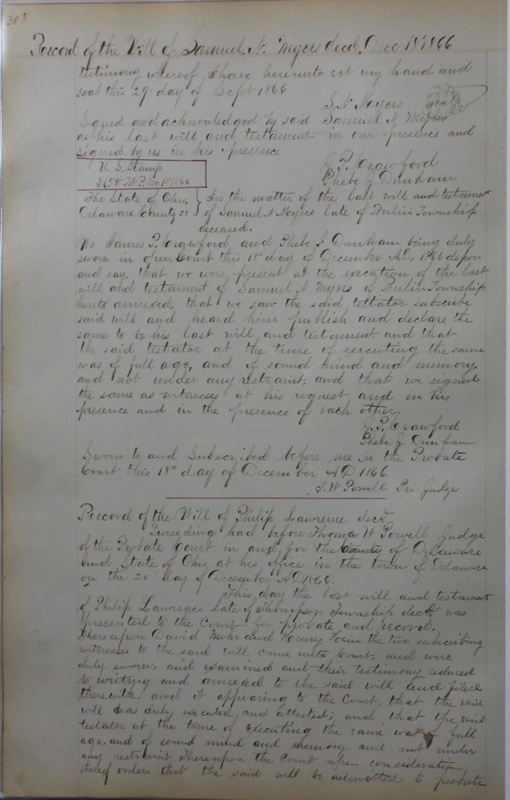 308
Record of the Will of Samuel N. Myers decd. Dec 18th 1866
testimony whereof I have hereunto set my hand and
seal this 29 day of Sept 1866
S. N. Myers
Signed and acknowledged by said Samuel N Myers
as his last will and testament in our presence and
signed by us in his presence
J. P. Crawford
Phebe J Dunham
U. S. Stamp
The State of Ohio In the matter of the last will and testament
Delaware County SS of Samuel N Myers late of Berlin Township
deceased.
We James P. Crawford, and Phebe J. Dunham being duly
sworn in open Court this 18th day of December A.D. 1866 depose
and say, that we were present at the execution of the last
will and testament of Samuel N Myers of Berlin Township
hereto annexed, that we saw the said testator subscribe
said will and heard him publish and declare the
same to be his last will and testament and that
the said testator at the time of executing the same
was of full age, and of sound mind and memory,
and not under any restraint; and that we signed
the same as witnesses at his request and in his
presence and in the presence of each other.
J. P. Crawford
Phebe J Dunham
Sworn to and Subscribed before me in the Probate
Court this 18th day of December AD 1866
T. W Powell Pro Judge
Record of the Will of Philip Lawrence decd
Proceeding had before Thomas W Powell Judge
of the Probate Court in and for the County of Delaware
and State of Ohio, at his office in the town of Delaware
on the 20th day of December AD 1866.
This day the last will and testament
of Philip Lawrence late of Thompson Township decd was
presented to the Court for probate and record,
thereupon David Mohr and Henry the two subscribing
witnesses to the said will came into Court, and were
duly sworn, and examined and their testimony reduced
to writing and annexed to the said will and filed
therewith: and it appearing to the Court, that the said
will was duly executed, and attested; and, that the said
testator at the time of executing the same was of full
age, and of sound mind and memory and not under
any restraint Thereupon the Court when consideration
thereof orders that the said will be admitted to probate